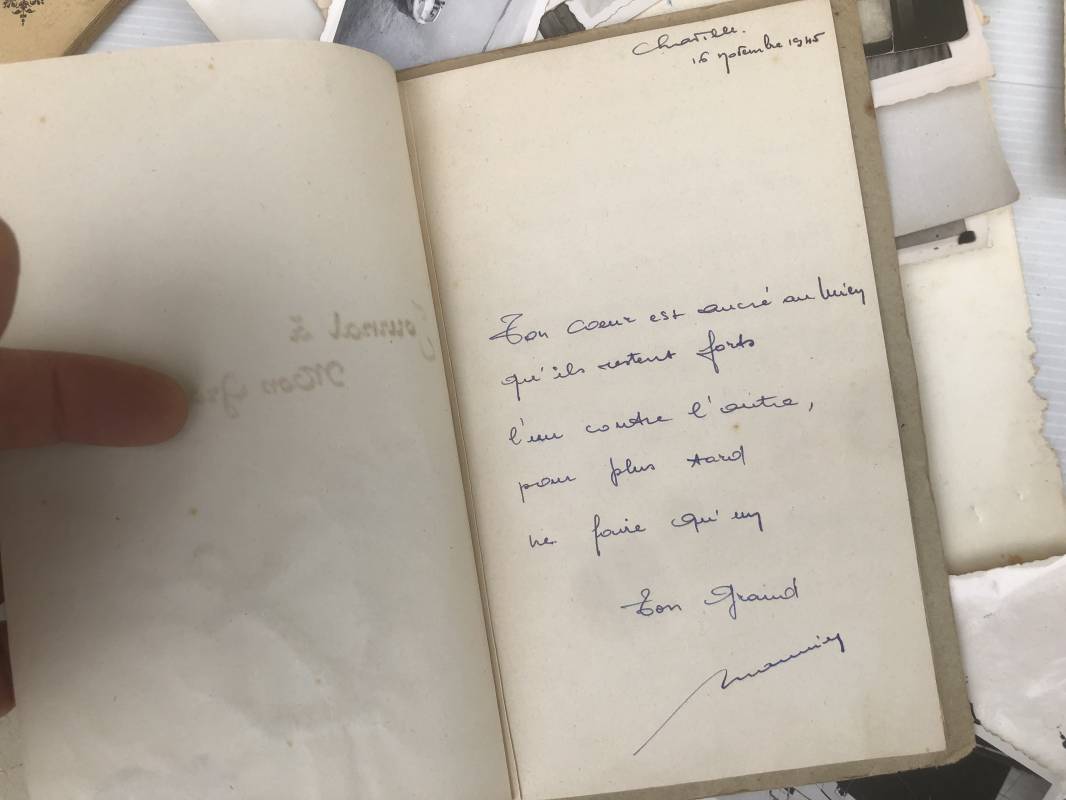 Journal à
Mon
16 novembre 1945
Ton coeur est ancré au mien
qu'ils restent forts
l'un contre l'autre,
pour plus tard
ne faire qu'un
Ton Grand